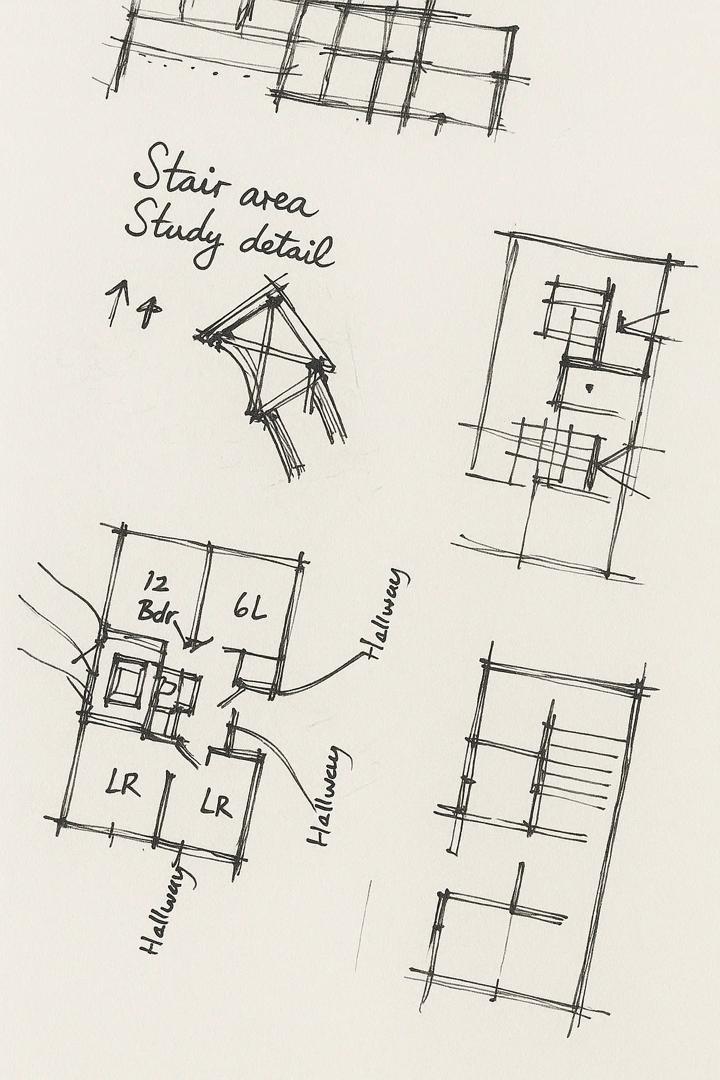 Stair area
Study detail
12
Bdr
6L
Hallway
LR
LR
Hallway
Hallway